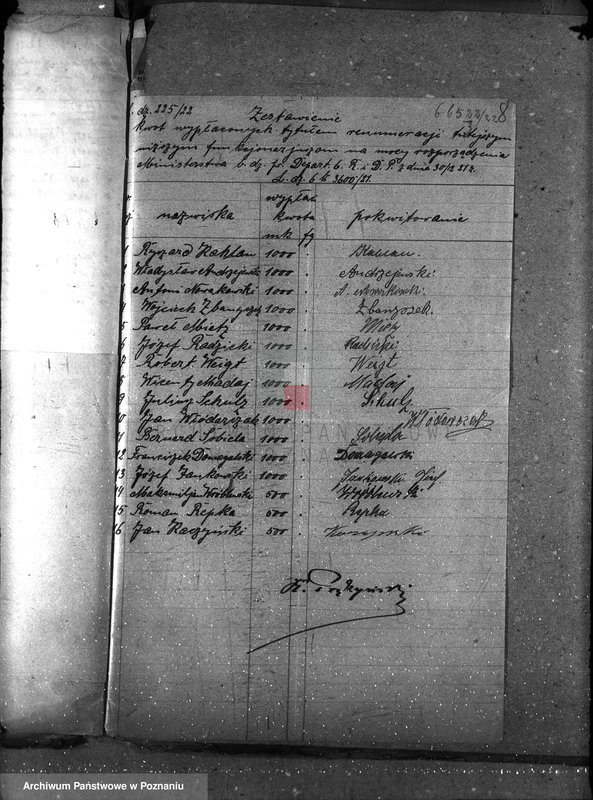 l. dz. 225/22
6 65 22/22 8
Zestawienie
kwot wypłaconych tytułem remuneracji tutejszym
niższym funkcjonarjuszom na mocy rozporządzenia
Ministerstwa b. dz. pr. Depart. 6. R. i D. P. z dnia 30/12 21 r.
L. dz. 6 k 3600/21.
nazwiska
wypłac.
kwota
mk fg
pokwitowanie
1 Ryszard Kahlan 1000 . Kahlan.
2 Władysław Andrzejewski 1000 . Andrzejewski.
3 Antoni Nowakowski 1000 . A. Nowakowski.
4 Wojciech Zbanyszek 1000 . Zbanyszek.
5 Paweł Mietz 1000 . Mietz
6 Józef Radzicki 1000 . Radzicki
7 Robert Weigt 1000 . Weigt
8 Wincenty Madaj 1000 . Madaj
9 Juljusz Schulz 1000 . Schulz
10 Jan Włodarczak 1000 . Włodarczak
11 Bernard Sobiela 1000 . Sobiela
12 Franciszek Domagalski 1000 . Domagalski
13 Józef Jankowski 1000 . Jankowski Józef
14 Maksymiljan Wróblewski 500 .
15 Roman Repka 500 . Repka
16 Jan Kaczyński 500 . Kaczyński
Archiwum Państwowe w Poznaniu